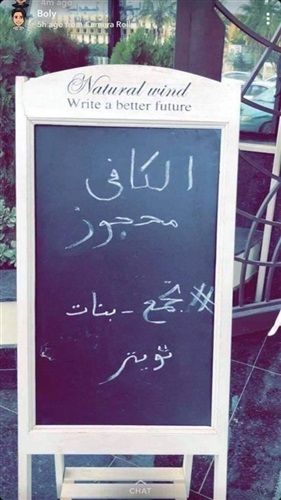 4m ago
Boly
5h ago from Camera Roll
Natural wind
Write a better future
الكافي
محجوز
#تجمع_بنات
تويتر
CHAT